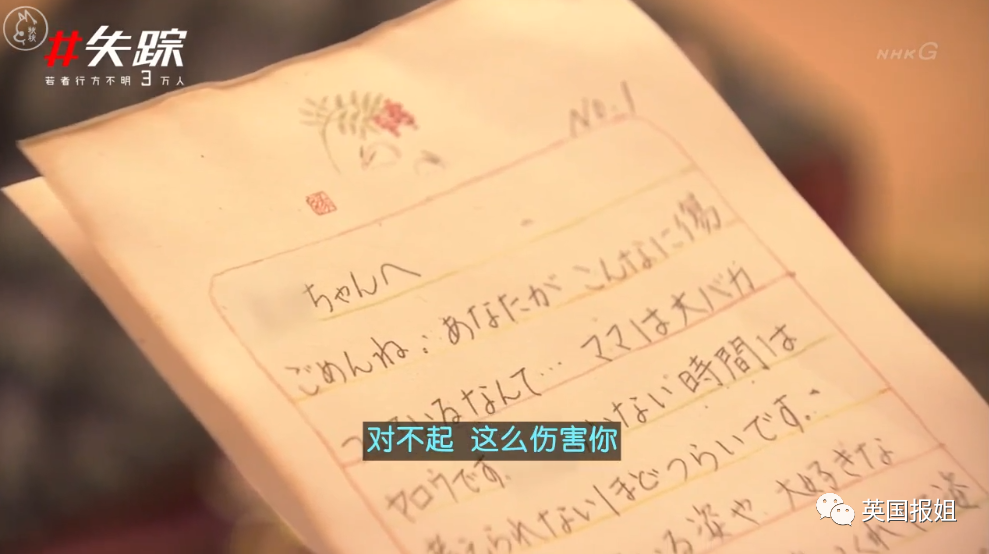 秋秋
#失踪
若者行方不明3万人
NHKG
No.1
ちゃんへ
ごめんね:あなたがこんなに傷
ついているなんて…ママは大バカ
ヤロウです。 いない時間は
考えられないほどつらいです。
る姿や、大好きな
对不起 这么伤害你
英国报姐